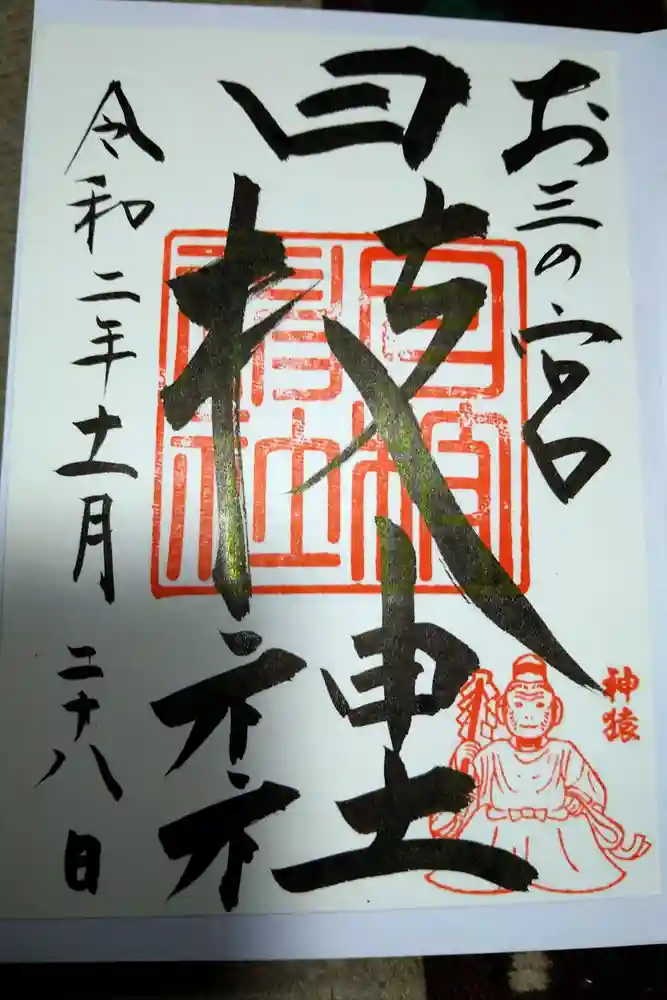 お三の宮
日枝神社
日枝神社
神猿
令和二年十一月二十八日